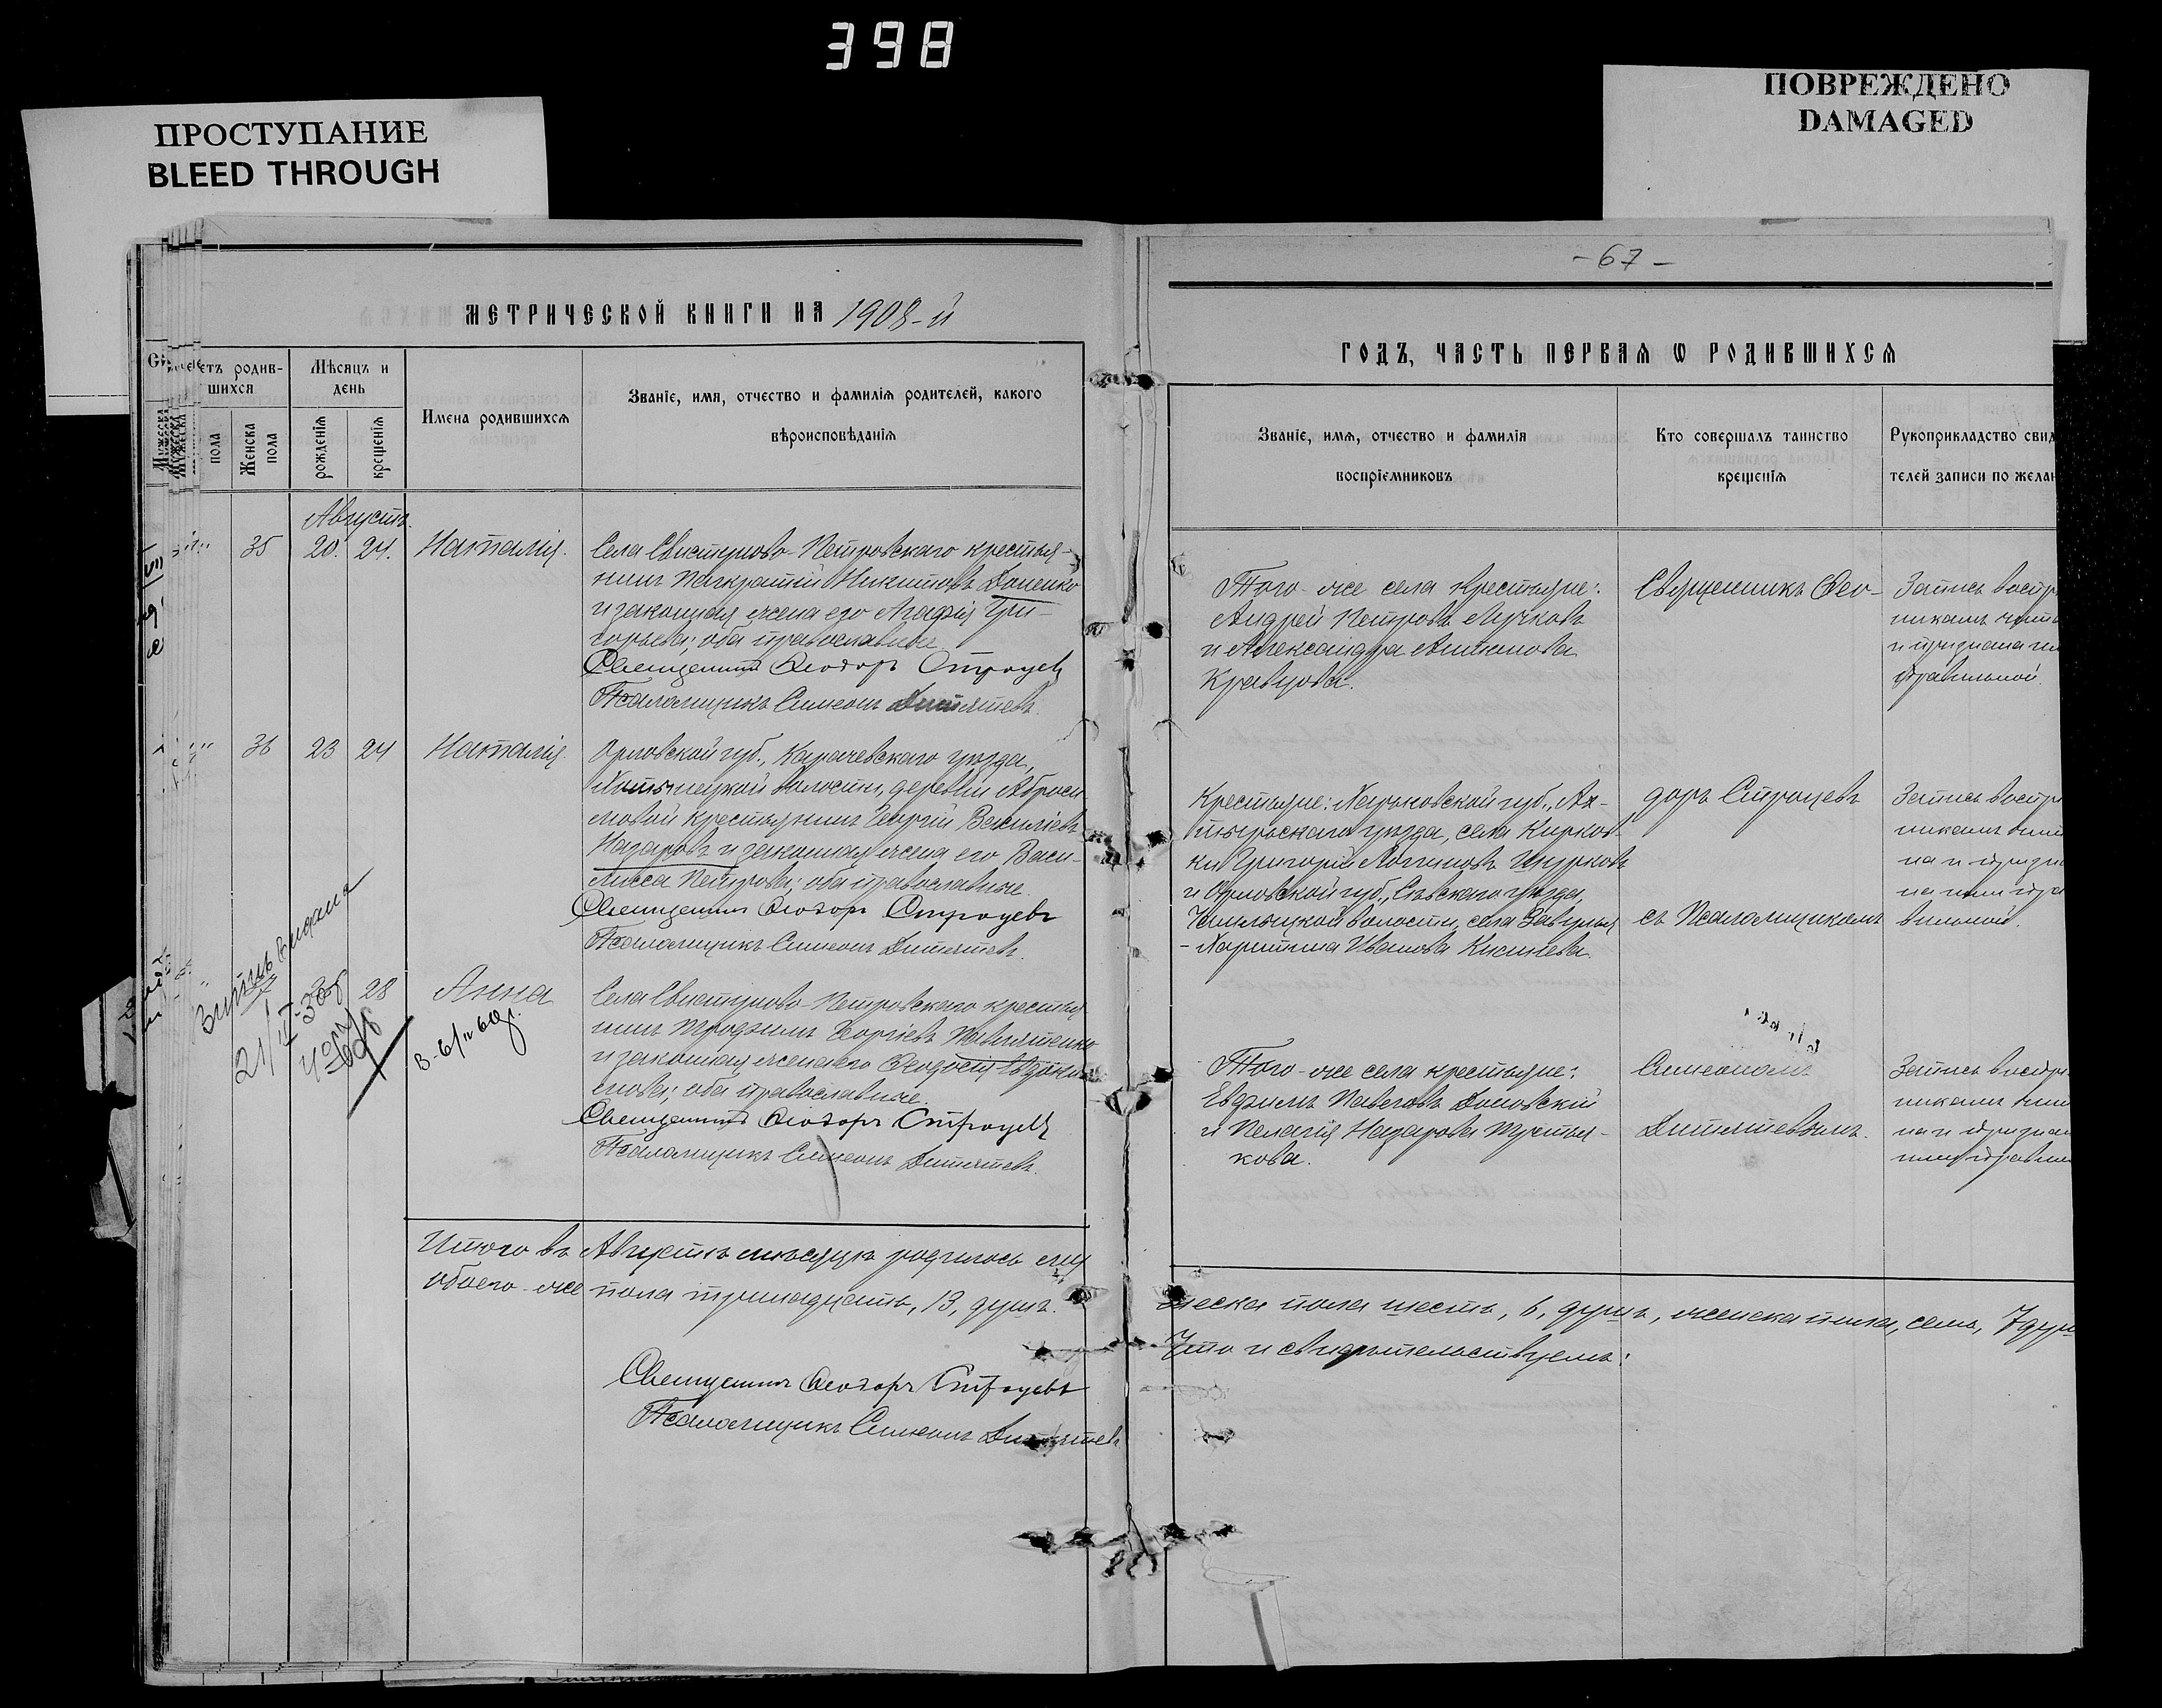 398
ПРОСТУПАНИЕ
BLEED THROUGH
ПОВРЕЖДЕНО
DAMAGED
- 67 -
МЕТРИЧЕСКОЙ КНИГИ НА 1908-й
ГОДЪ, ЧАСТЬ ПЕРВАЯ Ѡ РОДИВШИХСЯ
етъ родив-
шихся
Мѣсяцъ и
день
Имена родившихся
Званіе, имя, отчество и фамилія родителей, какого
вѣроисповѣданія
пола
Женска
пола
рожденія
крещенія
Званіе, имя, отчество и фамилія
воспріемниковъ
Кто совершалъ таинство
крещенія
Рукоприкладство свид
телей записи по желан
Августъ.
35
20.
24.
Наталія.
Села Свистуново-Петровскаго крестья-
нинъ Панкратій Никитовъ Доценко
и законная жена его Агафія Гри-
горьева; оба православные.
Священникъ Ѳеодоръ Строцевъ
Псаломщикъ Симеонъ Дитятевъ.
Того-же села крестьяне:
Андрей Петровъ Лучковъ
и Александра Антонова
Кравцова.
Священникъ Ѳео-
Запись воспр
никамъ
и признана
правильной.
36
23
24
Наталія.
Орловской губ., Карачевскаго уѣзда,
волости, деревни Аброси
мовой крестьянинъ Георгій Василіевъ
Назаровъ и законная жена его Васи-
лисса Петрова; оба православные.
Священникъ Ѳеодоръ Строцевъ
Псаломщикъ Симеонъ Дитятевъ.
Крестьяне: Харьковской губ., Ах-
тырскаго уѣзда, села Кирков-
ки Григорій Логгиновъ Шурковъ
и Орловской губ., Сѣвскаго уѣзда,
волости, села
- Харитина Иванова Киситева.
доръ Строцевъ
съ Псаломщикомъ
Запись воспр
никамъ
на и призна
на ими пра
вильной.
28
Анна
Села Свистуново-Петровскаго крестья
нинъ Трофимъ Георгіевъ
и законная жена его Ѳеодосія Евдоки
мова; оба православные.
Священникъ Ѳеодоръ Строцевъ
Псаломщикъ Симеонъ Дитятевъ.
Того-же села крестьяне:
Евфимъ Павловъ Доновскій
и Пелагія Назарова Третья-
кова.
Симеономъ
Дитятевымъ.
Запись воспр
никамъ
на и признан
ими правил
Итого въ Августѣ мѣсяцѣ родилось муж
обоего-же пола тринадцать, 13, душъ.
ческа пола шесть, 6, душъ, женска пола, семь, 7 душ
Что и свидѣтельствуемъ:
Священникъ Ѳеодоръ Строцевъ
Псаломщикъ Симеонъ Дитятевъ